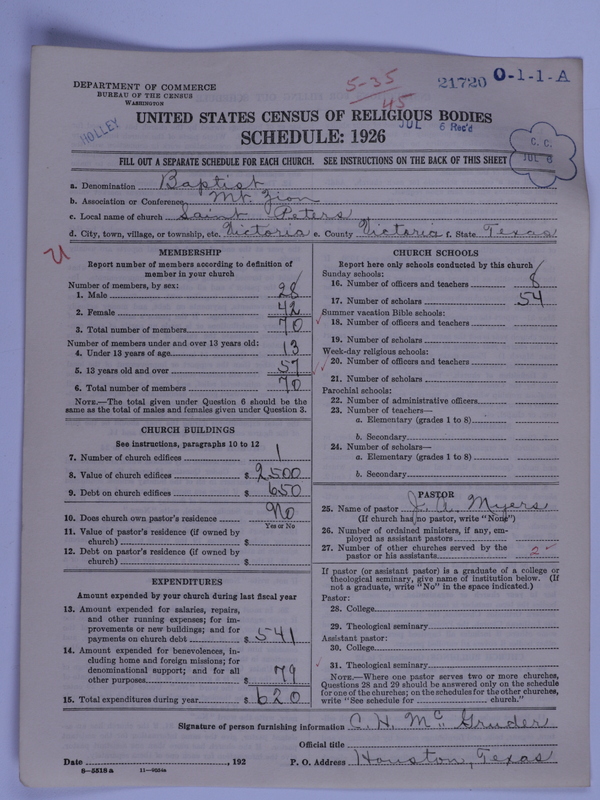 DEPARTMENT OF COMMERCE
BUREAU OF THE CENSUS
WASHINGTON
5-35
45
21720 O-1-1-A
HOLLEY
UNITED STATES CENSUS OF RELIGIOUS BODIES
JUL 6 Rec'd
SCHEDULE: 1926
C. C.
JUL 6
FILL OUT A SEPARATE SCHEDULE FOR EACH CHURCH. SEE INSTRUCTIONS ON THE BACK OF THIS SHEET
a. Denomination Baptist
b. Association or Conference Mt. Zion
c. Local name of church Saint Peters
d. City, town, village, or township, etc. Victoria e. County Victoria f. State Texas
U
MEMBERSHIP
Report number of members according to definition of
member in your church
Number of members, by sex:
1. Male 28
2. Female 42
3. Total number of members 70
Number of members under and over 13 years old:
4. Under 13 years of age 13
5. 13 years old and over 57
6. Total number of members 70
NOTE.—The total given under Question 6 should be the
same as the total of males and females given under Question 3.
CHURCH BUILDINGS
See instructions, paragraphs 10 to 12
7. Number of church edifices 1
8. Value of church edifices $ 2500
9. Debt on church edifices $ 650
10. Does church own pastor's residence No
Yes or No
11. Value of pastor's residence (if owned by
church) $
12. Debt on pastor's residence (if owned by
church) $
EXPENDITURES
Amount expended by your church during last fiscal year
13. Amount expended for salaries, repairs,
and other running expenses; for im-
provements or new buildings; and for
payments on church debt $ 541
14. Amount expended for benevolences, in-
cluding home and foreign missions; for
denominational support; and for all
other purposes $ 79
15. Total expenditures during year $ 620
CHURCH SCHOOLS
Report here only schools conducted by this church
Sunday schools:
16. Number of officers and teachers 8
17. Number of scholars 54
Summer vacation Bible schools:
18. Number of officers and teachers
19. Number of scholars
Week-day religious schools:
20. Number of officers and teachers
21. Number of scholars
Parochial schools:
22. Number of administrative officers
23. Number of teachers—
a. Elementary (grades 1 to 8)
b. Secondary
24. Number of scholars—
a. Elementary (grades 1 to 8)
b. Secondary
PASTOR
25. Name of pastor J. A. Myers
(If church has no pastor, write "None")
26. Number of ordained ministers, if any, em-
ployed as assistant pastors
27. Number of other churches served by the
pastor or his assistants 2
If pastor (or assistant pastor) is a graduate of a college or
theological seminary, give name of institution below. (If
not a graduate, write "No" in the space indicated.)
Pastor:
28. College
29. Theological seminary
Assistant pastor:
30. College
31. Theological seminary
NOTE.—Where one pastor serves two or more churches,
Questions 28 and 29 should be answered only on the schedule
for one of the churches; on the schedules for the other churches,
write "See schedule for church."
Signature of person furnishing information C. H. McGruder
Official title
Date , 192 P. O. Address Houston, Texas
8-5518 a 11-9054a